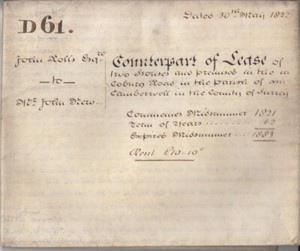 D61.
Dated 30th May 182
John Rolls Esqre
to
Mr. John
Counterpart of Lease of
two Houses and premises in the
Coburg Road in the parish of
Camberwell in the County of Surrey
Commences Midsummer 1821
Term of Years 62
Expires Midsummer 1883
Rent £10-10s